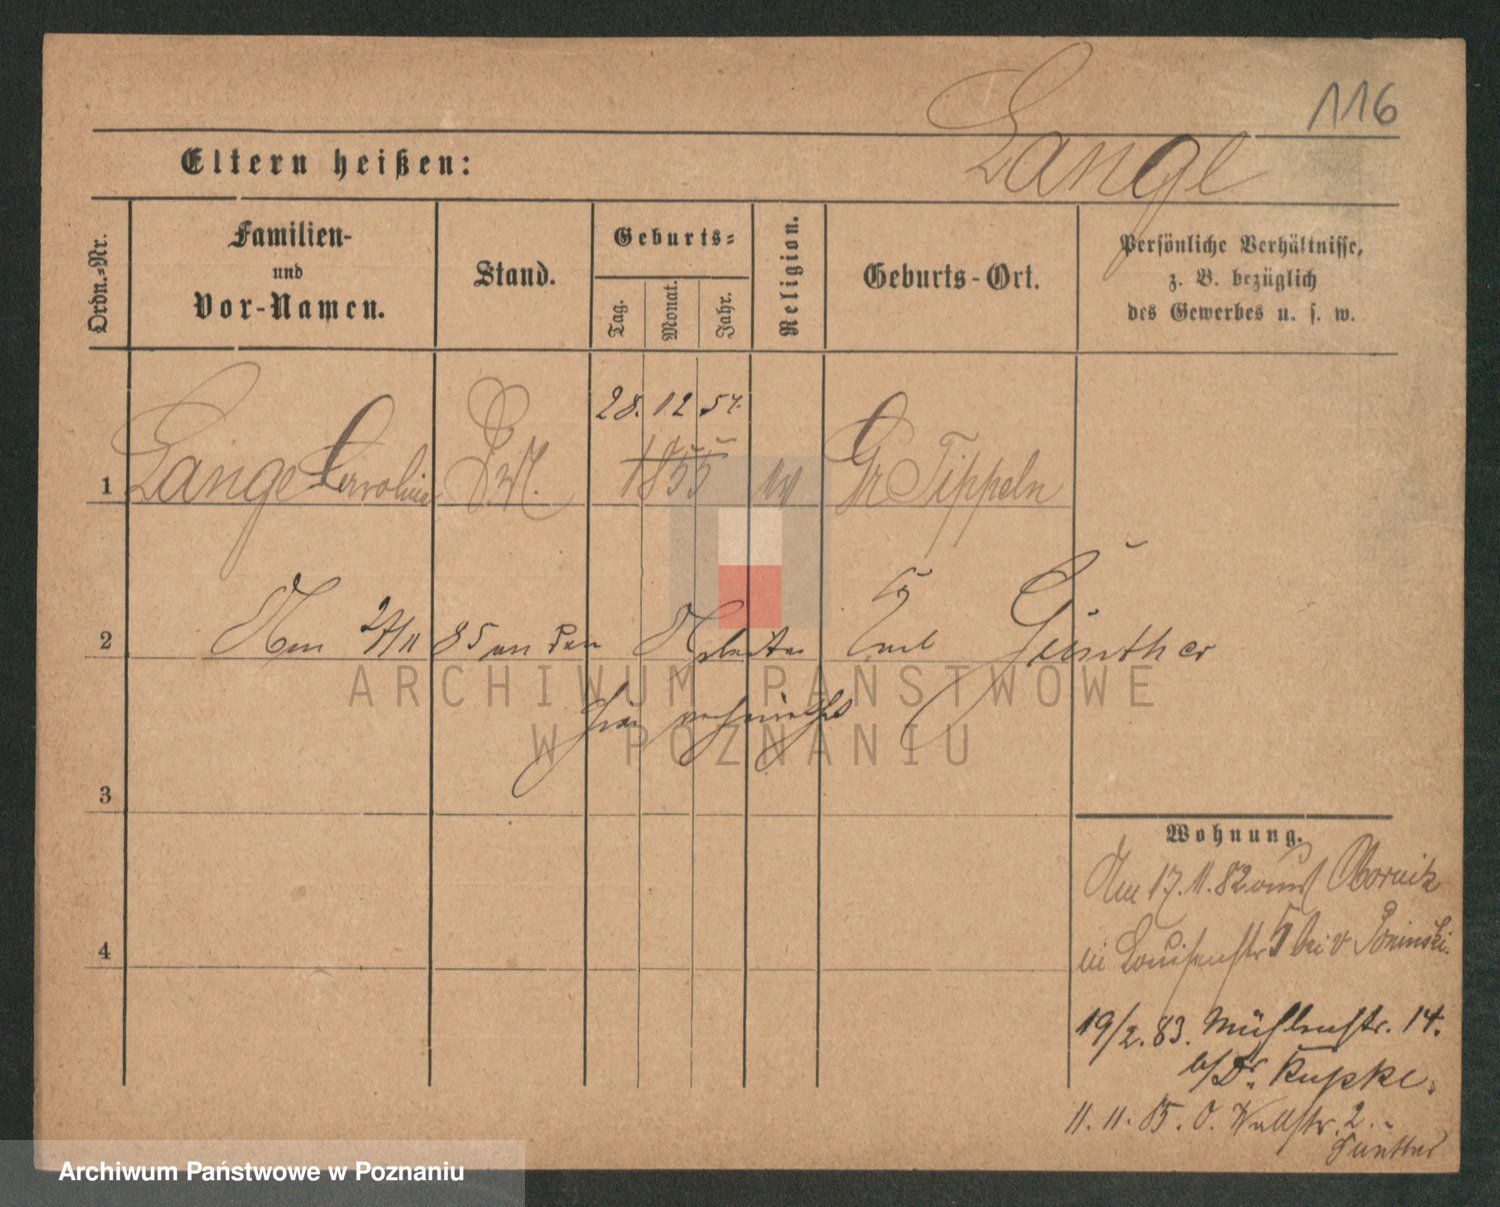 116
Lange
Eltern heißen:
Ordn.-Nr.
Familien-
und
Vor-Namen.
Stand.
Geburts-
Tag.
Monat.
Jahr.
Religion.
Geburts-Ort.
Persönliche Verhältnisse,
z. B. bezüglich
des Gewerbes u. s. w.
28. 12 54.
1 Lange Carroline 1855 Gr Tippeln
2 Am 27/11 85 an den Arbeiter Günther
ARCHIWUM PAŃSTWOWE
W POZNANIU
3
Wohnung.
Am 17. 11. 82 aus Obornik
in Louisenstr 5 bei v Poninski.
4
19/2. 83. Mühlenstr. 14.
b/Dr. Kupke.
11. 11. 85. O. Wallstr. 2.
Günther
Archiwum Państwowe w Poznaniu